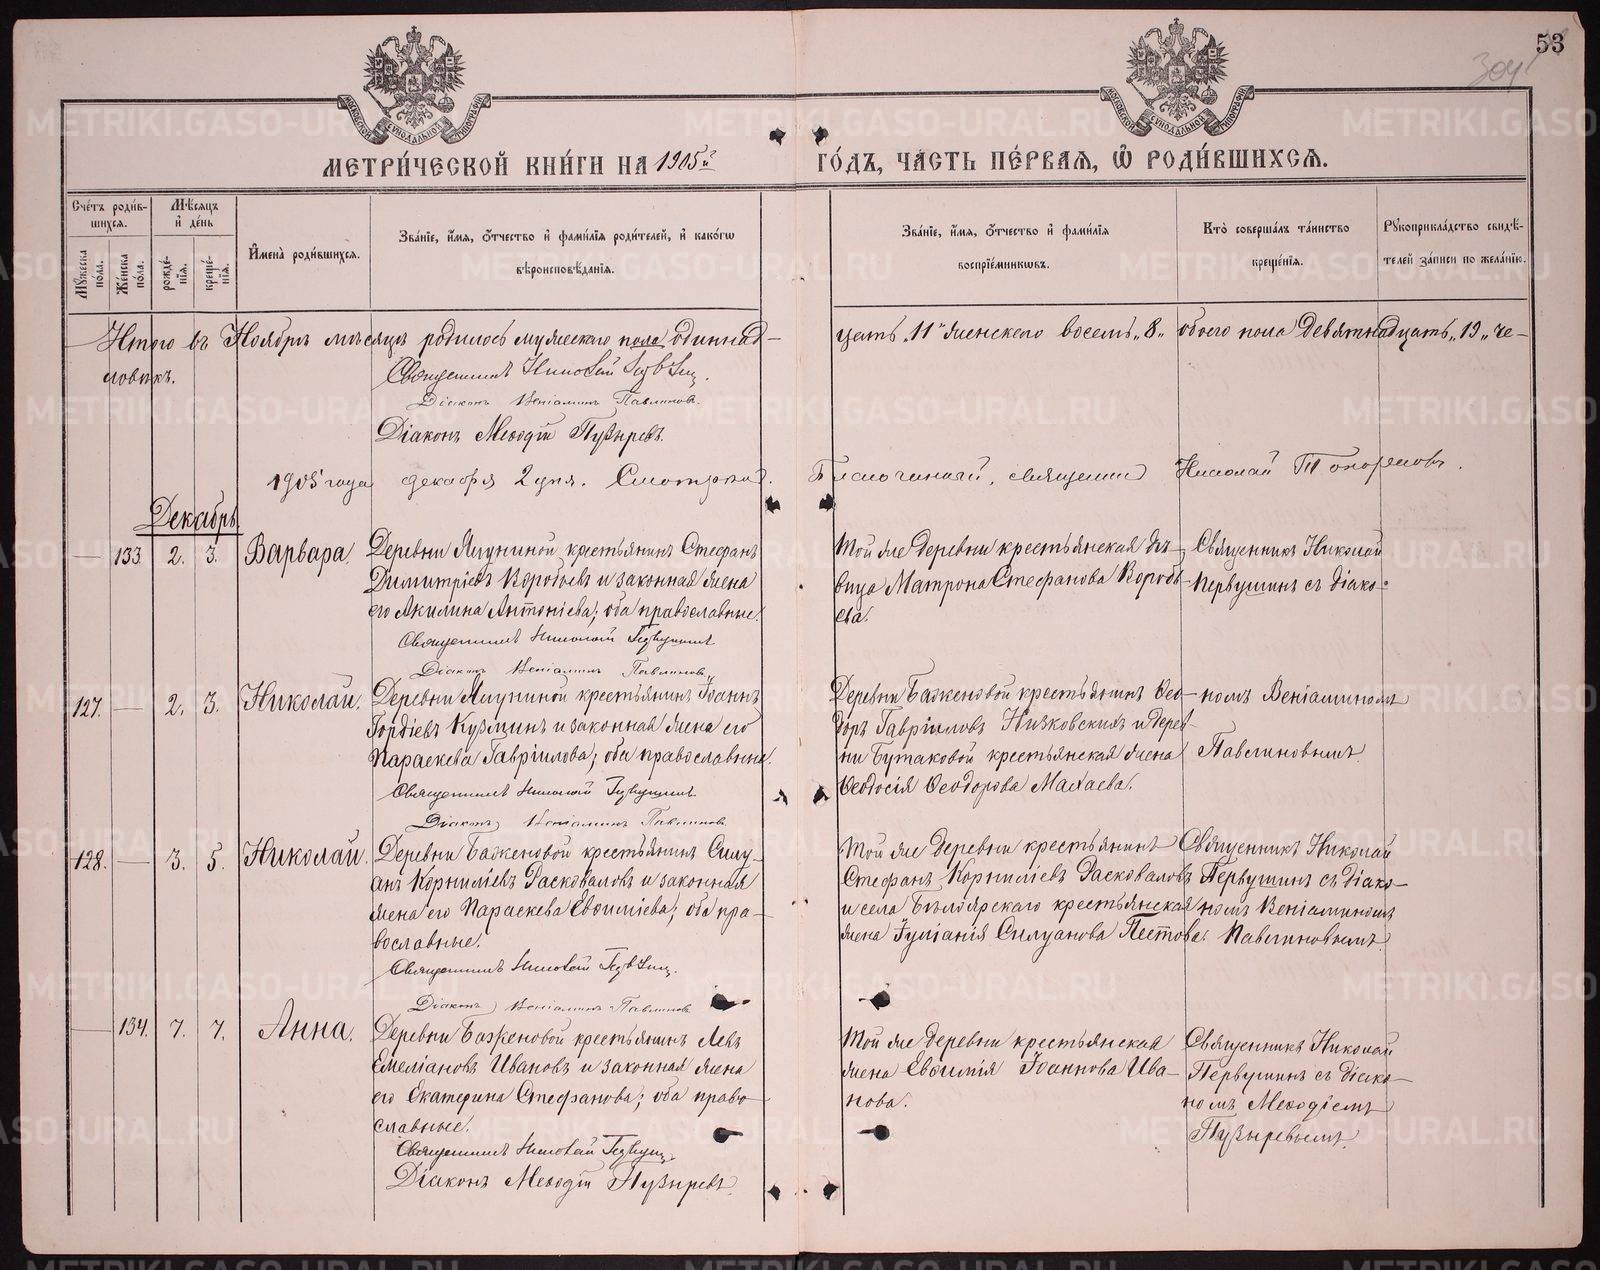 53
304
МЕТРИ́ЧЕСКОЙ КНИ́ГИ НА 1905й ГО́ДЪ, ЧА́СТЬ ПЕ́РВАЯ, Ѡ РОДИ́ВШИХСЯ.
Сче́тъ роди́в-
шихся.
Му́жеска пола.
Же́нска по́ла.
Мѣ́сяцъ
и҆ де́нь
рожде́-
нїя.
креще́-
нїя.
И҆мена̀ роди́вшихся.
Зва́нїе, и҆́мя, ѻ҆́тчество и҆ фами́лїя роди́телей, и҆ како́гѡ
вѣроисповѣ́данїя.
Зва́нїе, и҆́мя, ѻ҆́тчество и҆ фами́лїя
воспрїе́мниковъ.
Кто̀ соверша́лъ та́инство
креще́нїя.
Рꙋкоприкла́дство свидѣ́-
телей за́писи по жела́нїю.
Итого въ Ноябрѣ мѣсяцѣ родилось мужескаго пола одиннад-
цать „11" женскаго восемь „8„ обоего пола девятнадцать „19„ че-
ловѣкъ.
Священникъ Николай
Діаконъ Веніаминъ Павлиновъ.
Діаконъ Меѳодій Пузыревъ.
1905 года декабря 2 дня. Смотрѣлъ. Благочинный, священникъ Николай Топорковъ.
Декабрь.
133. 2. 3. Варвара.
Деревни Ялуниной крестьянинъ Стефанъ
Димитріевъ Воробьевъ и законная жена
его Акилина Антоніева; оба православные.
Священникъ Николай Первушинъ
Діаконъ Веніаминъ Павлиновъ
Той же деревни крестьянская дѣ-
вица Матрона Стефанова Воробь-
ева.
Священникъ Николай
Первушинъ съ діако-
127. 2. 3. Николай.
Деревни Ялуниной крестьянинъ Іоаннъ
Гордіевъ Кузмцинъ и законная жена его
Параскева Гавріилова; оба православные.
Священникъ Николай Первушинъ
Діаконъ Веніаминъ Павлиновъ
Деревни Баженовой крестьянинъ Ѳео-
доръ Гавріиловъ Низковскихъ и дерев-
ни Бутаковой крестьянская жена
Ѳеодосія Ѳеодорова Махаева.
номъ Веніаминомъ
Павлиновымъ
128. 3. 5. Николай.
Деревни Баженовой крестьянинъ Силу-
анъ Корниліевъ Расковаловъ и законная
жена его Параскева Евѳиміева; оба пра-
вославные.
Священникъ Николай
Діаконъ Веніаминъ Павлиновъ
Той же деревни крестьянинъ
Стефанъ Корниліевъ Расковаловъ
и села Бѣлоярскаго крестьянская
жена Іуліанія Силуанова Пестова.
Священникъ Николай
Первушинъ съ діако-
номъ Веніаминомъ
Павлиновымъ
134. 7. 7. Анна.
Деревни Баженовой крестьянинъ Левъ
Емеліановъ Ивановъ и законная жена
его Екатерина Стефанова; оба право-
славные.
Священникъ Николай
Діаконъ Меѳодій Пузыревъ
Той же деревни крестьянская
жена Евѳимія Іоаннова Ива-
нова.
Священникъ Николай
Первушинъ съ діако-
номъ Меѳодіемъ
Пузыревымъ.
METRIKI.GASO-URAL.RU